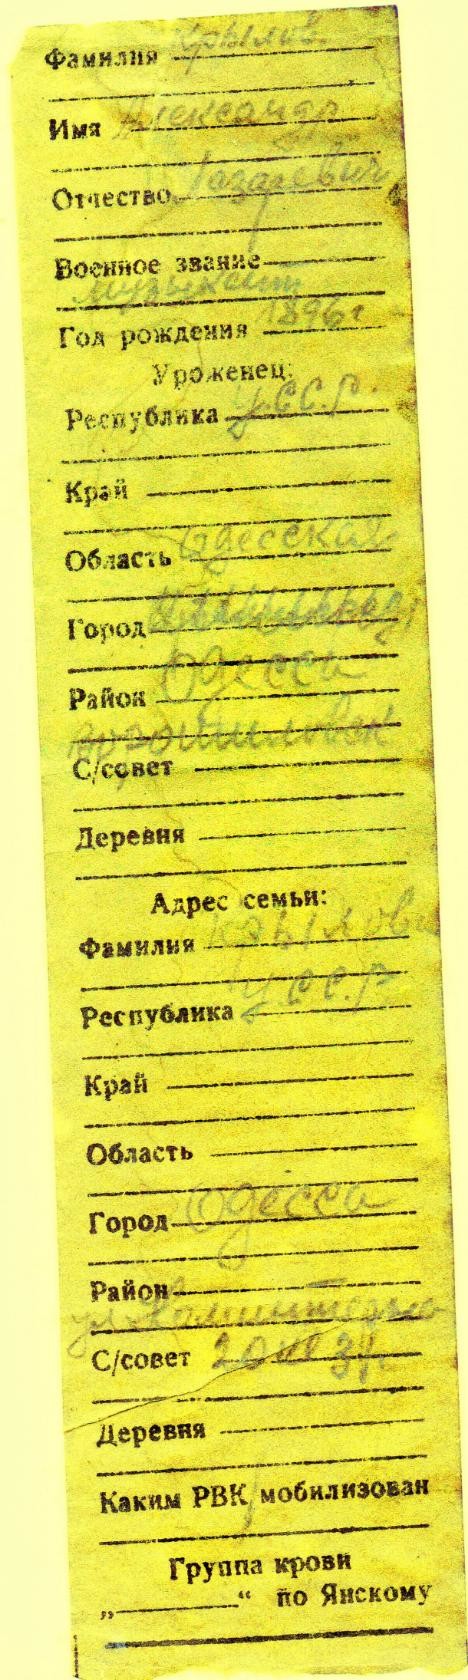 Фамилия Крылов
Имя Александр
Отчество Лазаревич
Военное звание
музыкант
Год рождения 1896 г
Уроженец:
Республика У.С.С.Р.
Край
Область Одесская
Город
Одесса
Район
Ворошиловск
С/совет
Деревня
Адрес семьи:
Фамилия Крылова
Республика У.С.С.Р.
Край
Область
Город Одесса
Район
ул.
С/совет 20
Деревня
Каким РВК мобилизован
Группа крови
„ “ по Янскому